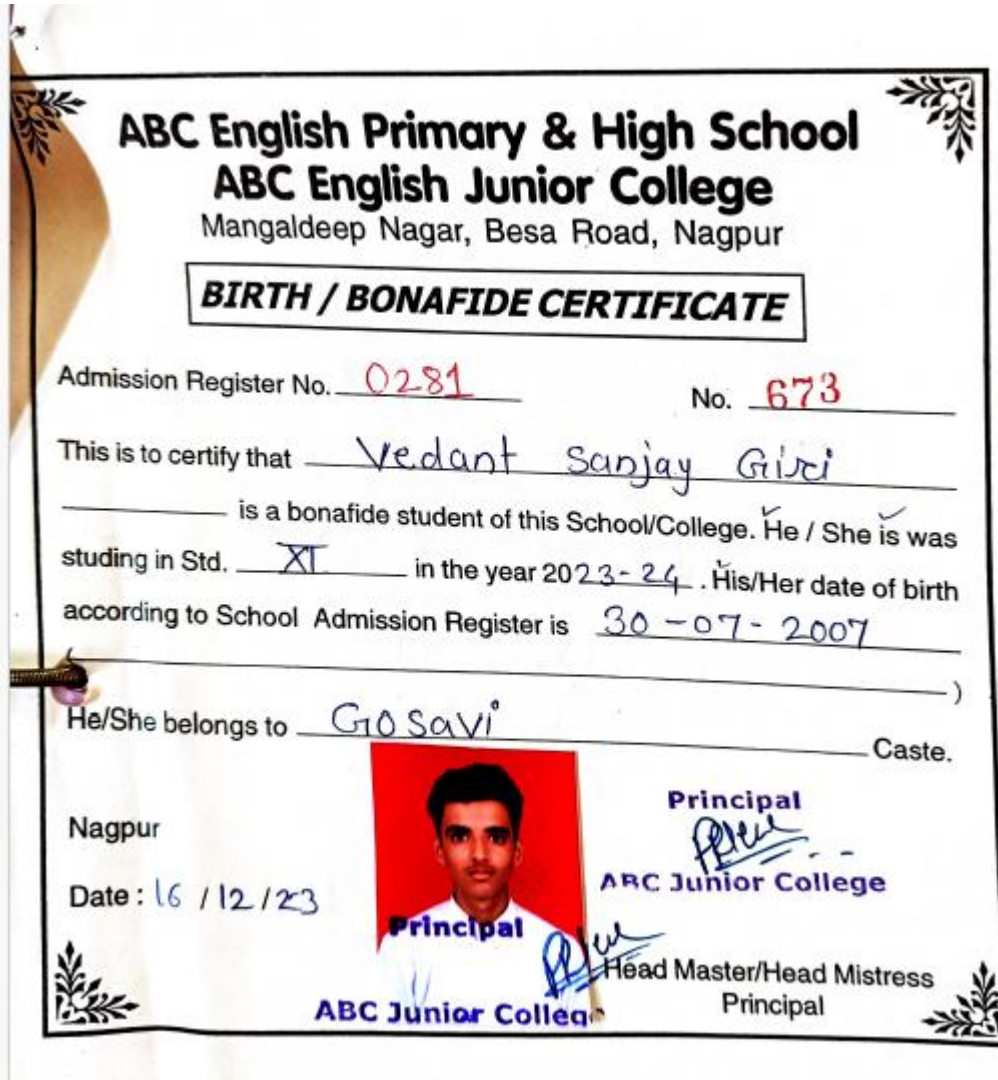 ABC English Primary & High School
ABC English Junior College
Mangaldeep Nagar, Besa Road, Nagpur
BIRTH / BONAFIDE CERTIFICATE
Admission Register No. 0281 No. 673
This is to certify that Vedant Sanjay Giri
is a bonafide student of this School/College. He / She is was
studing in Std. XI in the year 2023-24 . His/Her date of birth
according to School Admission Register is 30-07-2007
)
He/She belongs to Gosavi Caste.
Principal
Nagpur
ABC Junior College
Date : 16 / 12 / 23
Principal
Head Master/Head Mistress
Principal
ABC Junior Colleg